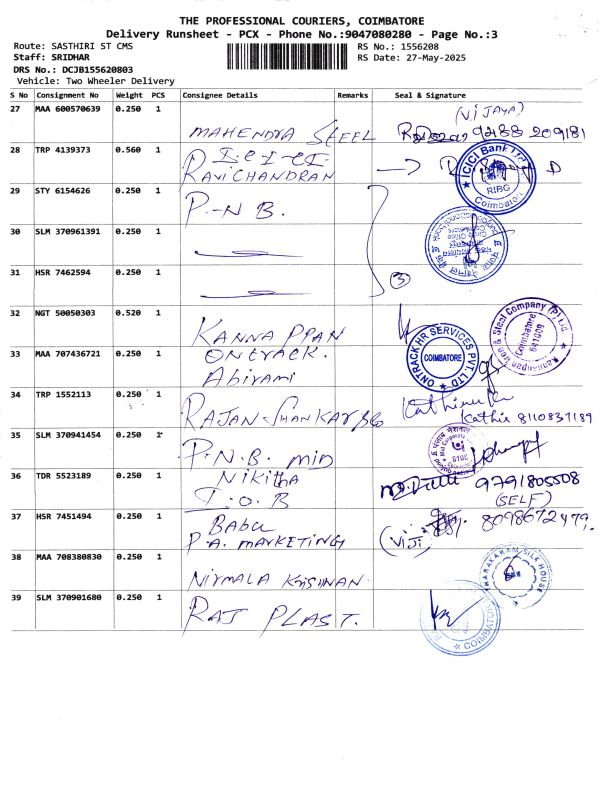 THE PROFESSIONAL COURIERS, COIMBATORE
Delivery Runsheet - PCX - Phone No.:9047080280 - Page No.:3
Route: SASTHIRI ST CMS
RS No.: 1556208
Staff: SRIDHAR
RS Date: 27-May-2025
DRS No.: DCJB155620803
Vehicle: Two Wheeler Delivery
S No Consignment No Weight PCS Consignee Details Remarks Seal & Signature
27 MAA 600570639 0.250 1 MAHENDRA STEEL (VIJAYA) 92188 209181
28 TRP 4139373 0.560 1 ICICI
RAVICHANDRAN
ICICI Bank Ltd
RIBG
Coimbatore
29 STY 6154626 0.250 1 P.N.B.
30 SLM 370961391 0.250 1
31 HSR 7462594 0.250 1
3
32 NGT 50050303 0.520 1 KANNAPPAN
Kannapan Iron & Steel Company (P) Ltd
Coimbatore
641009
33 MAA 707436721 0.250 1 ONTRACK.
Abirami
ONTRACK HR SERVICES PVT. LTD
COIMBATORE
34 TRP 1552113 0.250 1 RAJAN-Shankar
Kathir 8110837189
35 SLM 370941454 0.250 1 P.N.B. mid
36 TDR 5523189 0.250 1 Nikitha
I.O.B
9791805508
(SELF)
37 HSR 7451494 0.250 1 Babu
P.A. MARKETING
(VIJI) 8098672479.
38 MAA 708380830 0.250 1 NIRMALA KRISHNAN
HARAKARAM SILK HOUSE
39 SLM 370901680 0.250 1 RAJ PLAST.
COIMBATOR